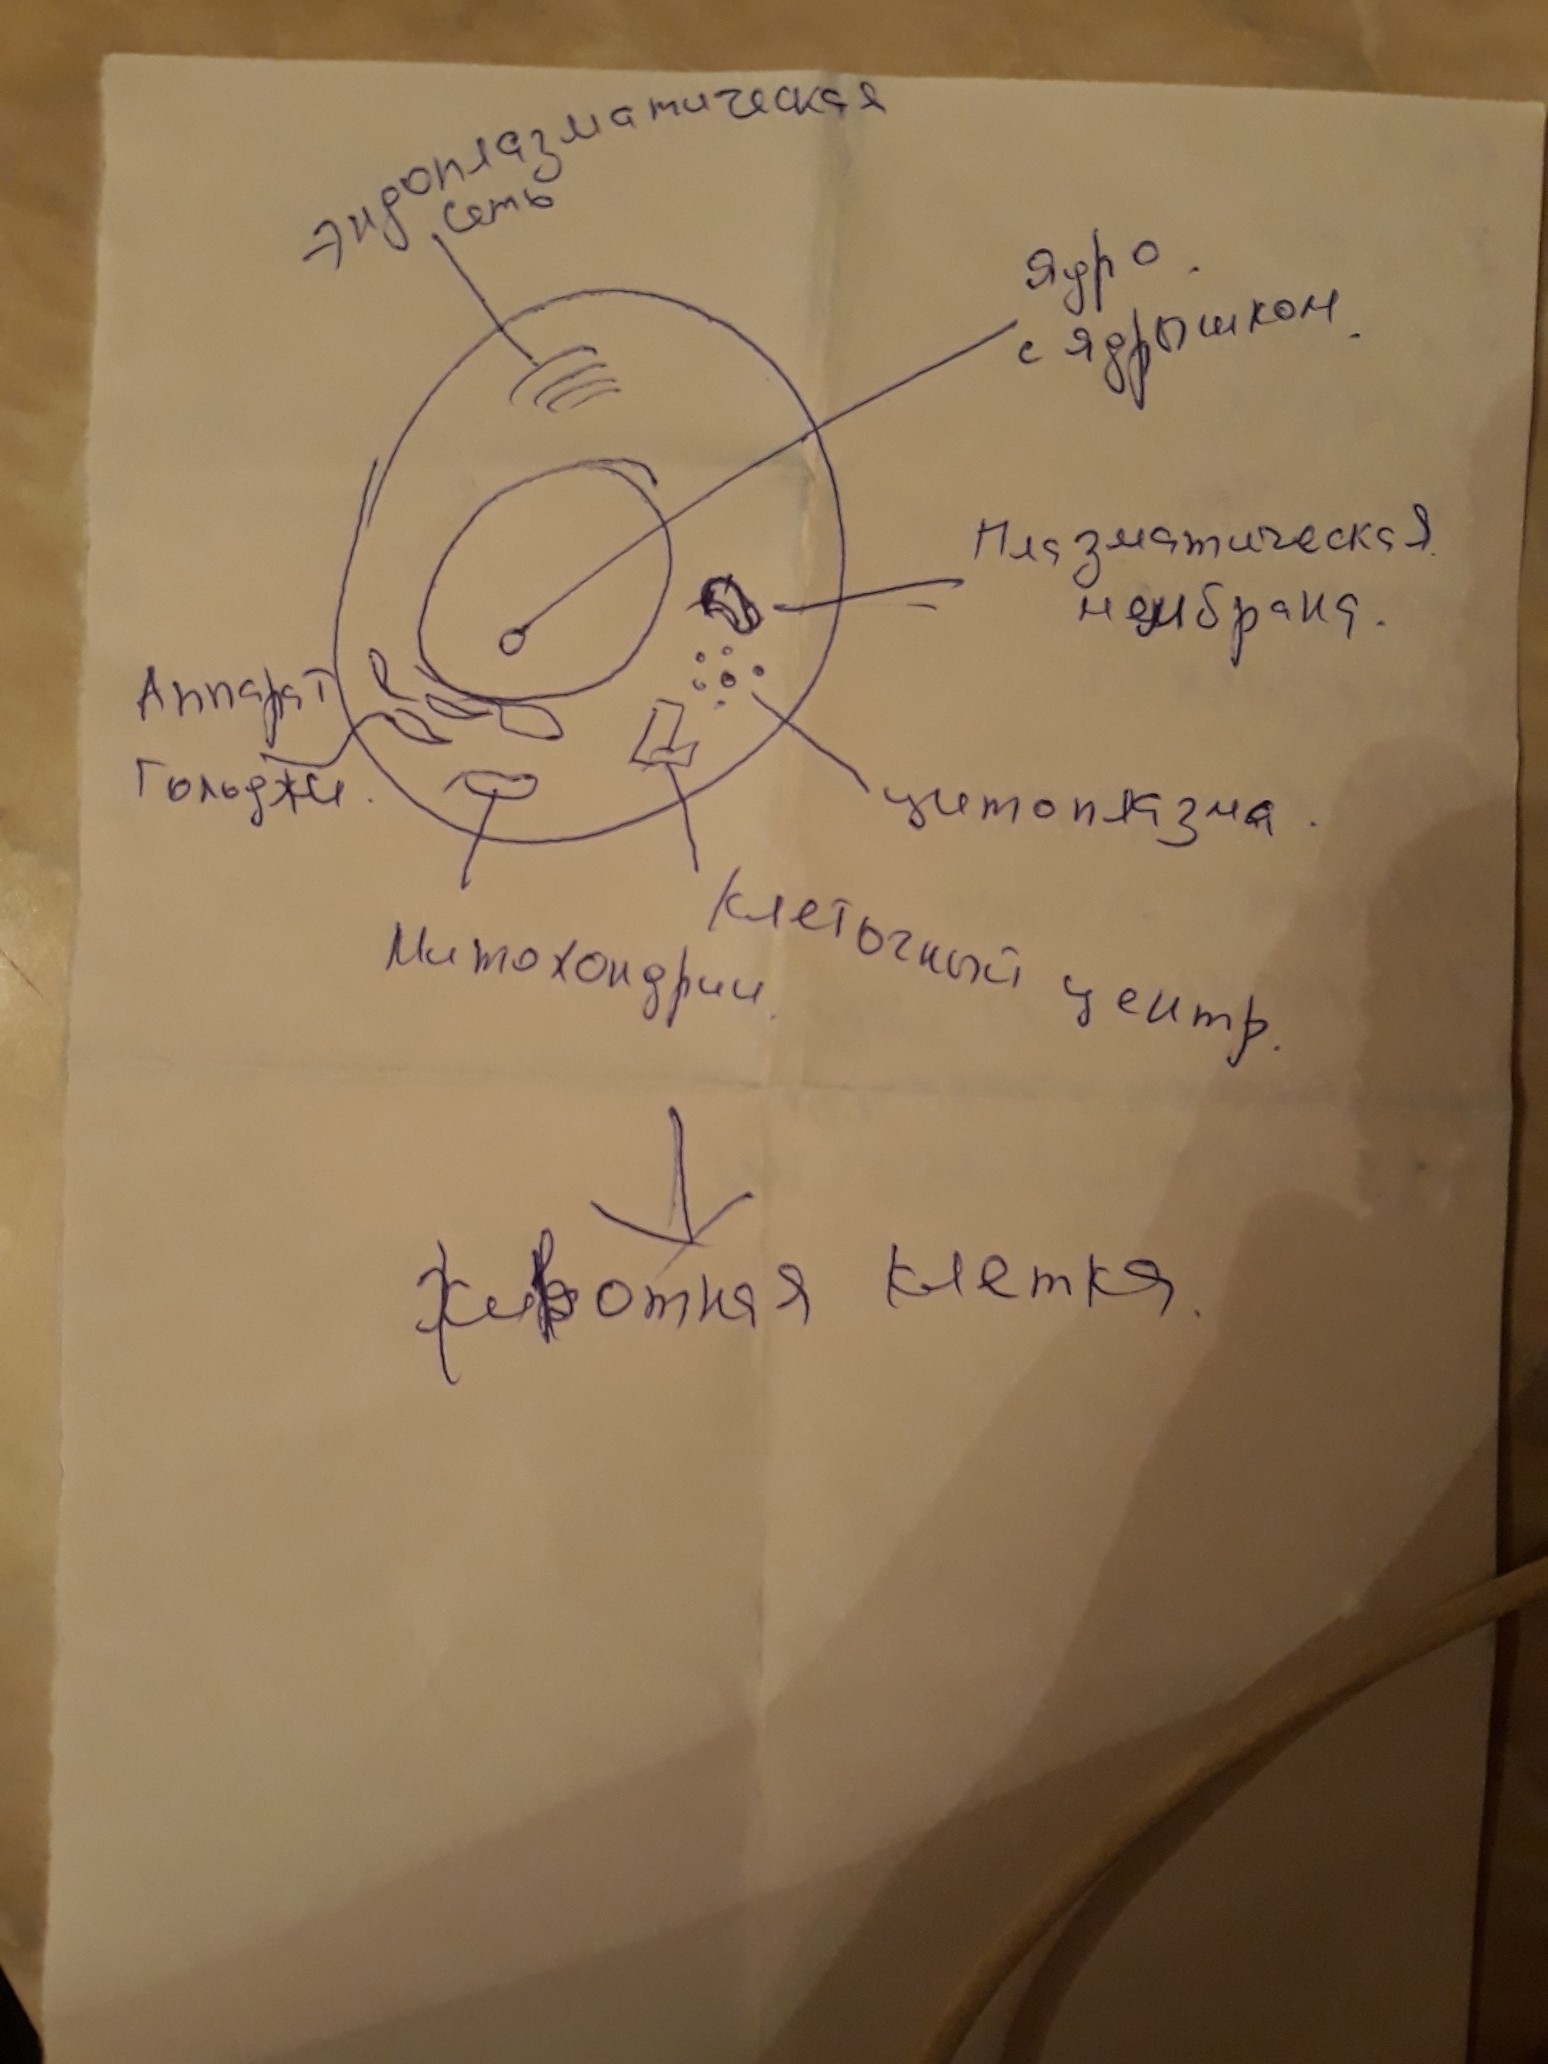 Эндоплазматическая
сеть
Ядро.
с ядрышком.
Плазматическая
мембрана.
Аппарат
Гольджи.
цитоплазма.
Клеточный центр.
Митохондрии.
Животная клетка.